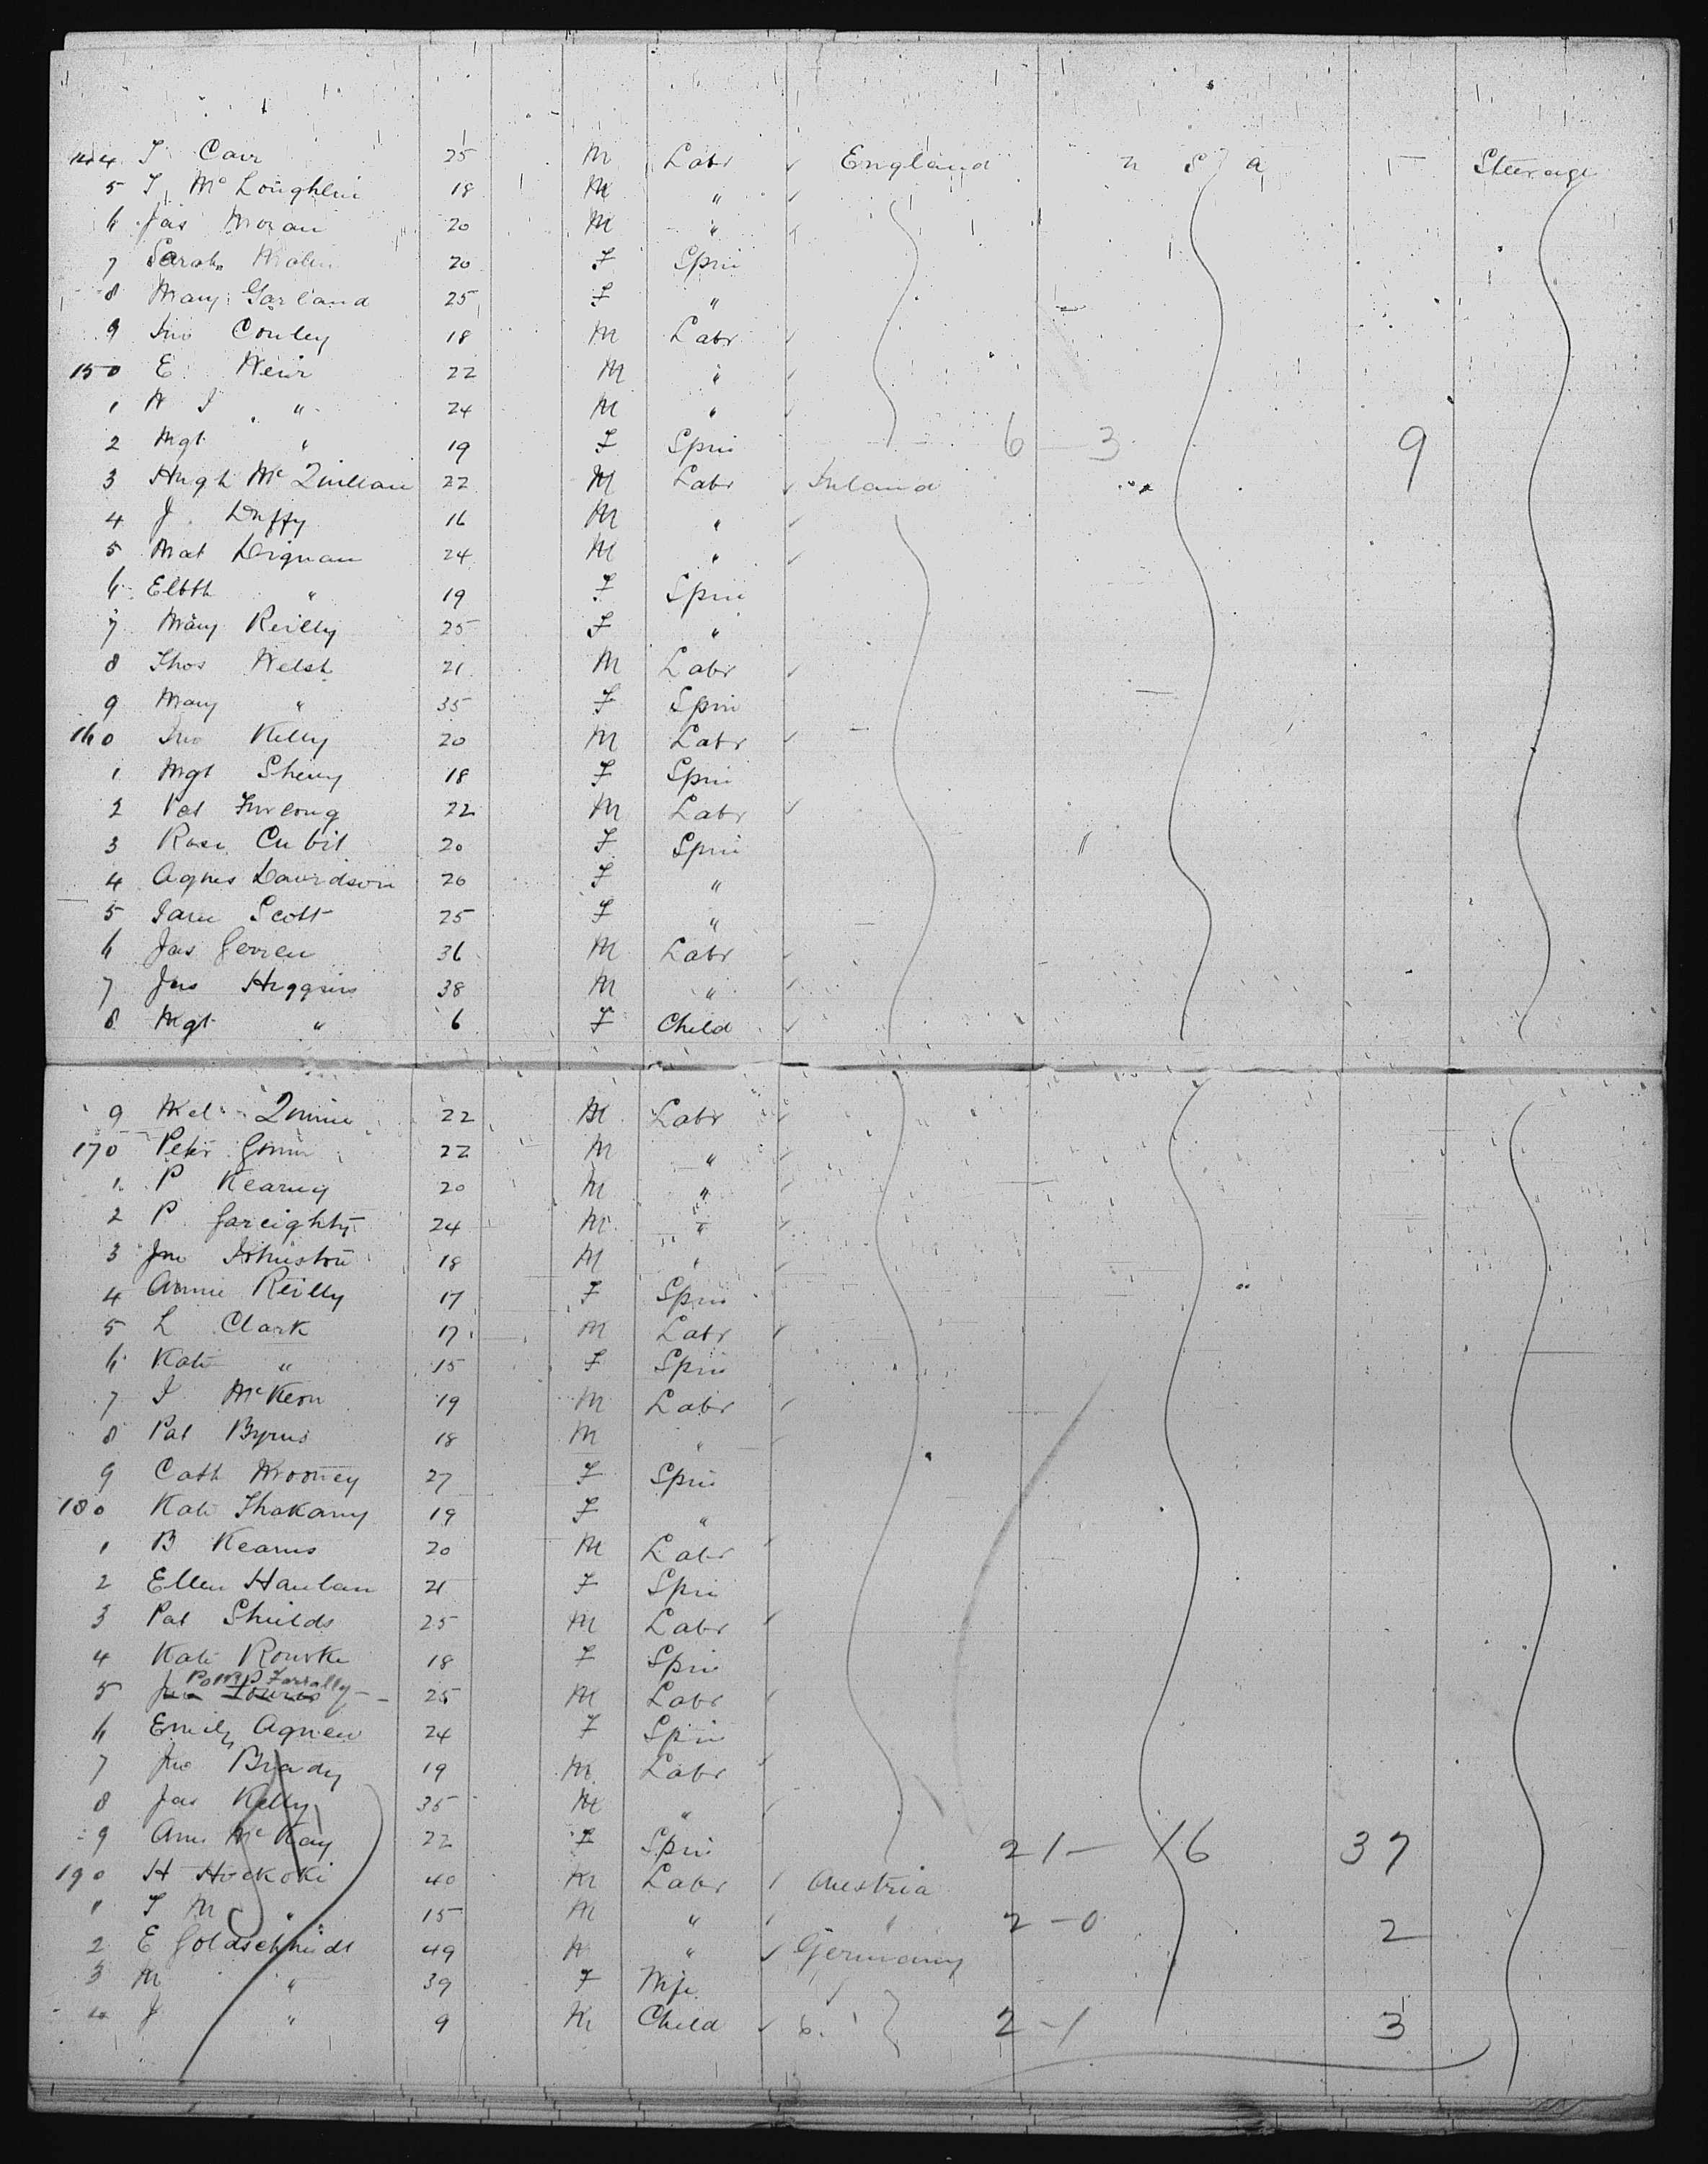 144 T Carr 25 M Labr ✓ England U S A Steerage
5 T McLoughlin 18 M " ✓
6 Jas Moran 20 M "
7 Sarah 20 F Spin
8 Mary Garland 25 F "
9 Jno Conley 18 M Labr ✓
150 E Weir 22 M " ✓
1 W J " 24 M " ✓
2 Mgt " 19 F Spin 6 - 3 9
3 Hugh McQuillan 22 M Labr ✓ Ireland
4 J Duffy 16 M " ✓
5 Mat Dignan 24 M " ✓
6 Elbth " 19 F Spin
7 Mary Reilly 25 F "
8 Thos Welsh 21 M Labr ✓
9 Mary " 35 F Spin
160 Jno Kelly 20 M Labr ✓
1 Mgt Sherry 18 F Spin
2 Pat Furlong 22 M Labr ✓
3 Rose Cubit 20 F Spin
4 Agnes Davidson 20 F "
5 Jane Scott 25 F "
6 Jas 36 M Labr
7 Jas Higgins 38 M " ✓
8 Mgt " 6 F Child ✓
9 Quinn 22 M Labr ✓
170 Peter 22 M "
1 P Kearny 20 M "
2 P Gareighty 24 M " ✓
3 Jno Johnston 18 M "
4 Annie Reilly 17 F Spin
5 L Clark 17 M Labr ✓
6 Kate " 15 F Spin
7 J McKeon 19 M Labr ✓
8 Pat Byrns 18 M "
9 Cath Mooney 27 F Spin
180 Kate 19 F "
1 B Kearns 20 M Labr
2 Ellen Hanlan 21 F Spin
3 Pat Shields 25 M Labr
4 Kate Rourke 18 F Spin
5 Farrally 25 M Labr
6 Emily Agnew 24 F Spin
7 Jno Brady 19 M Labr
8 Jas Kelly 35 M "
9 Ann McKay 22 F Spin 21 - 16 37
190 H Hockoki 40 M Labr ✓ Austria
1 " 15 M " ✓ " 2 - 0 2
2 E Goldschmidt 49 M " ✓ Germany
3 M " 39 F Wife
4 J " 9 M Child ✓ 2 - 1 3